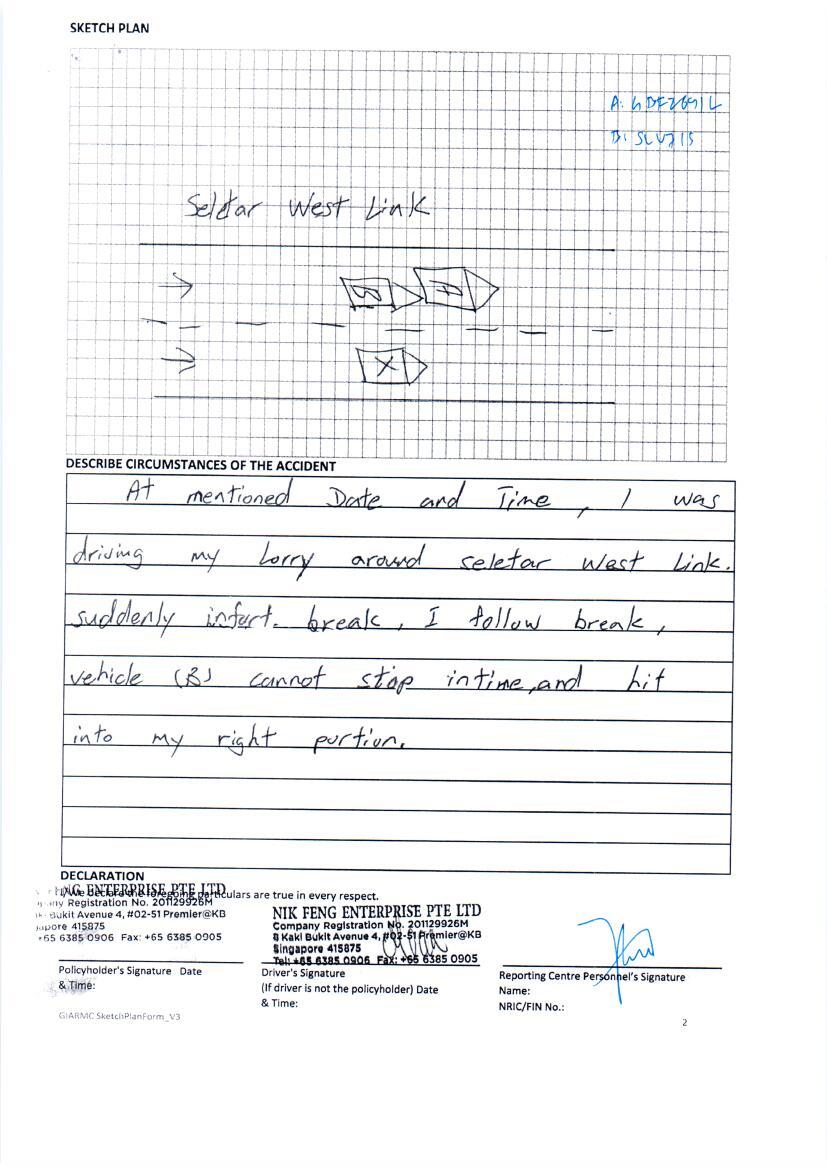 SKETCH PLAN
B: SLV
Seletar West Link
B A
X
DESCRIBE CIRCUMSTANCES OF THE ACCIDENT
At mentioned Date and Time, I was
driving my lorry around seletar West Link.
suddenly infort. break, I follow break,
vehicle (B) cannot stop intime, and hit
into my right portion.
DECLARATION
I/We declare the foregoing particulars are true in every respect.
NG ENTERPRISE PTE LTD
any Registration No. 201129926M
Bukit Avenue 4, #02-51 Premier@KB
apore 415875
+65 6385 0906 Fax: +65 6385 0905
NIK FENG ENTERPRISE PTE LTD
Company Registration No. 201129926M
8 Kaki Bukit Avenue 4, #02-51 Premier@KB
Singapore 415875
Tel: +65 6385 0906 Fax: +65 6385 0905
Policyholder's Signature Date
& Time:
Driver's Signature
(If driver is not the policyholder) Date
& Time:
Reporting Centre Personnel's Signature
Name:
NRIC/FIN No.:
GIARMC SketchPlanForm_V3
2